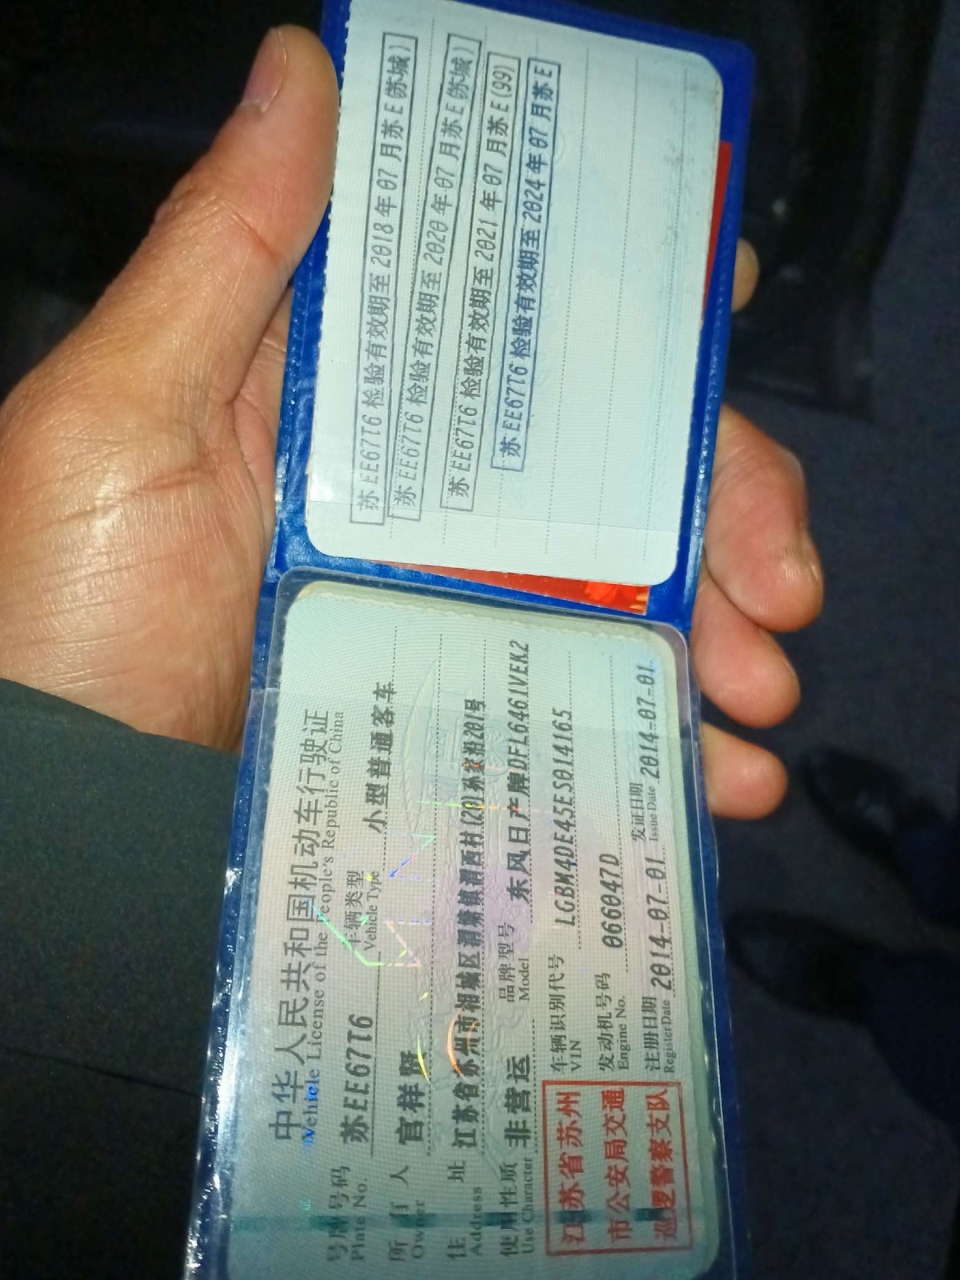 中华人民共和国机动车行驶证
Vehicle License of the People's Republic of China
号牌号码 Plate No. 苏EE67T6 车辆类型 Vehicle Type 小型普通客车
所有人 Owner 官样贤
住址 Address 江苏省苏州市相城区渭塘镇渭西村(20)孙家沿201号
使用性质 Use Character 非营运 品牌型号 Model 东风日产牌DFL6461VEK2
车辆识别代号 VIN LGBM4DE45ES014165
发动机号码 Engine No. 066047D
注册日期 Register Date 2014-07-01 发证日期 Issue Date 2014-07-01
江苏省苏州
市公安局交通
巡逻警察支队
苏EE67T6 检验有效期至 2018 年 07 月苏E(苏城)
苏EE67T6 检验有效期至 2020 年 07 月苏E(苏城)
苏EE67T6 检验有效期至 2021 年 07 月苏E(99)
苏EE67T6 检验有效期至 2024 年 07 月苏E